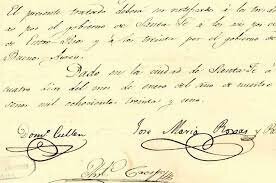 El presente tratado deberá ser notificado à los
por el gobierno de Santa-Fé à los
Entre-Rios y à los por el gobierno de
Buenos Ayres.
Dado en la ciudad de Santa-Fé à
cuatro dias del mes de enero del año de nuestro
ochocientos treinta y uno.
Dom.º Cullen
José Maria Roxas y P
Crespo